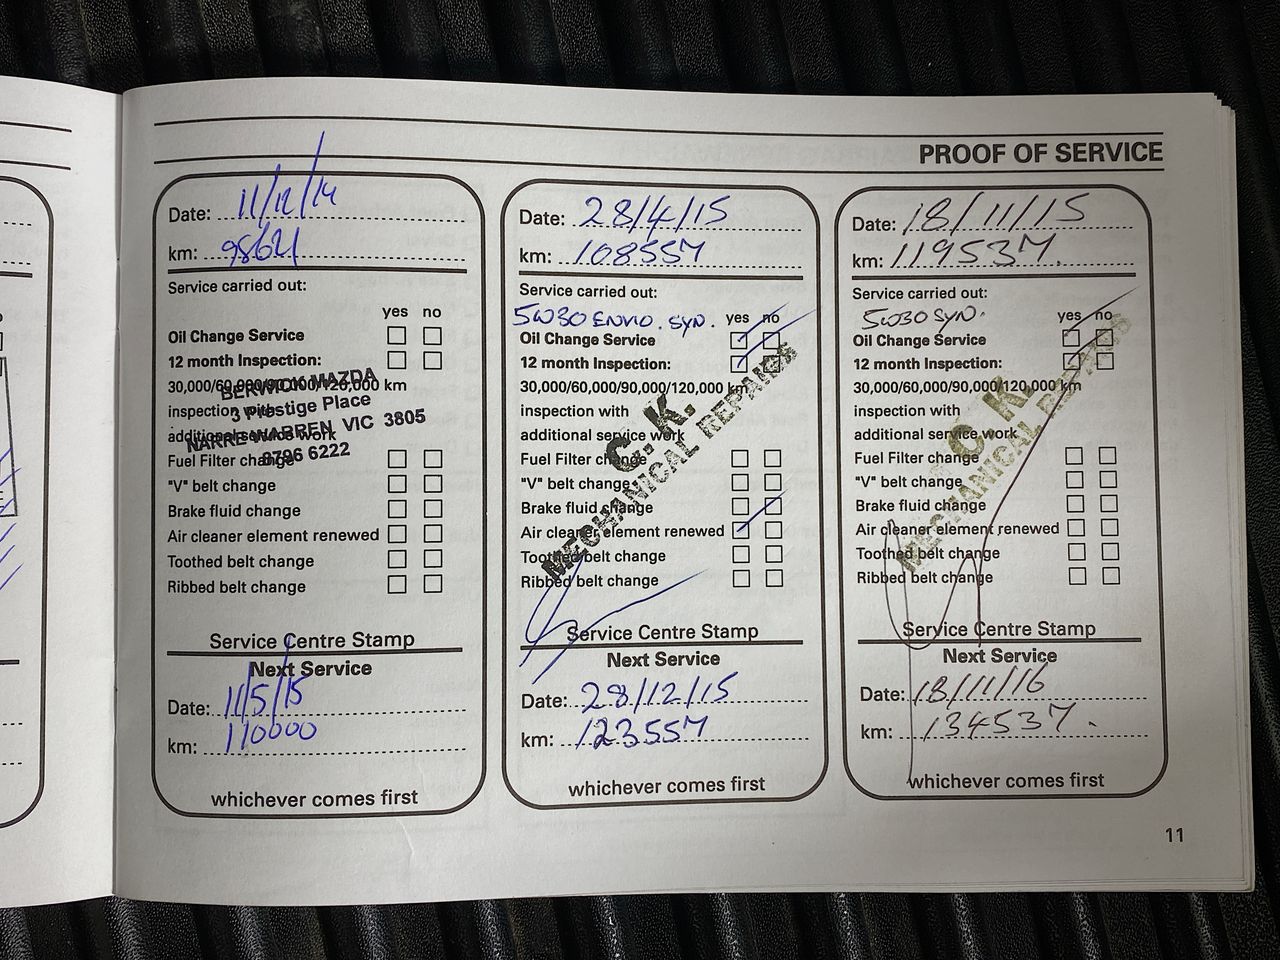 PROOF OF SERVICE
Date: 11/12/14
km: 98621
Service carried out:
yes no
Oil Change Service
12 month Inspection:
30,000/60,000/90,000/120,000 km
inspection with
additional service work
BERWICK MAZDA
3 Prestige Place
NARRE WARREN VIC 3805
8796 6222
Fuel Filter change
"V" belt change
Brake fluid change
Air cleaner element renewed
Toothed belt change
Ribbed belt change
Service Centre Stamp
Next Service
Date: 11/5/15
km: 110000
whichever comes first
Date: 28/4/15
km: 108557
Service carried out:
5W30 ENVIO. SYN.
yes no
Oil Change Service
12 month Inspection:
30,000/60,000/90,000/120,000 km
inspection with
additional service work
C. K.
MECHANICAL REPAIRS
Fuel Filter change
"V" belt change
Brake fluid change
Air cleaner element renewed
Toothed belt change
Ribbed belt change
Service Centre Stamp
Next Service
Date: 28/12/15
km: 123557
whichever comes first
Date: 18/11/15
km: 119537.
Service carried out:
5W30 SYN.
yes no
Oil Change Service
12 month Inspection:
30,000/60,000/90,000/120,000 km
inspection with
additional service work
C. K.
MECHANICAL REPAIRS
Fuel Filter change
"V" belt change
Brake fluid change
Air cleaner element renewed
Toothed belt change
Ribbed belt change
Service Centre Stamp
Next Service
Date: 18/11/16
km: 134537.
whichever comes first
11